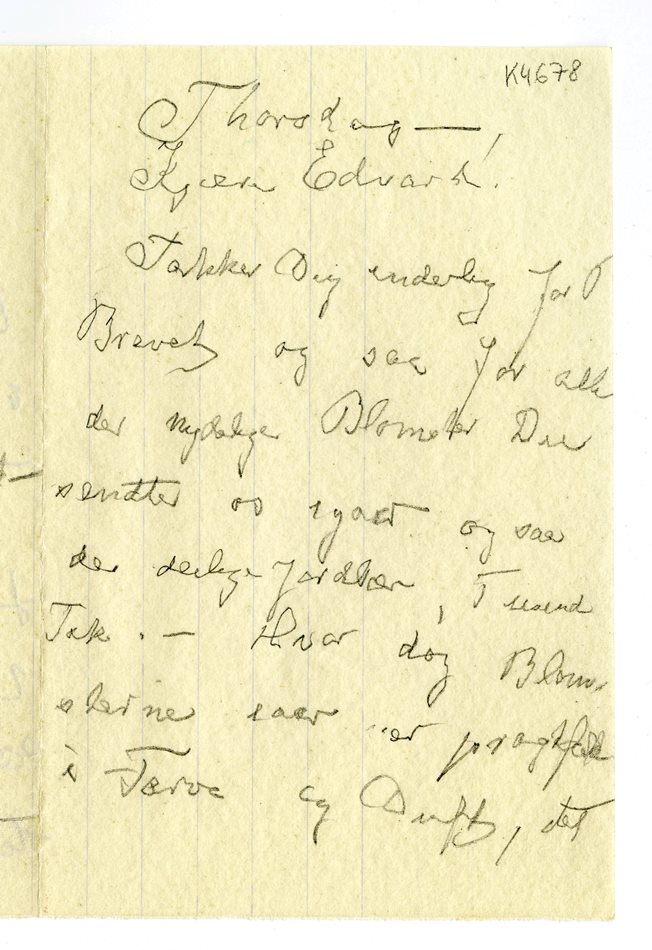 K4678
Thorsdag —,
Kjære Edvard!
Takker Dig inderlig for
Brevet og saa for alle
der nydelige Blomster Du
sendter os igaar og saa
der deilige Jordbær, Tusend
Tak. — Hvor dog Blom-
sterne iaar er pragtfulde
i Farve og Duft, det